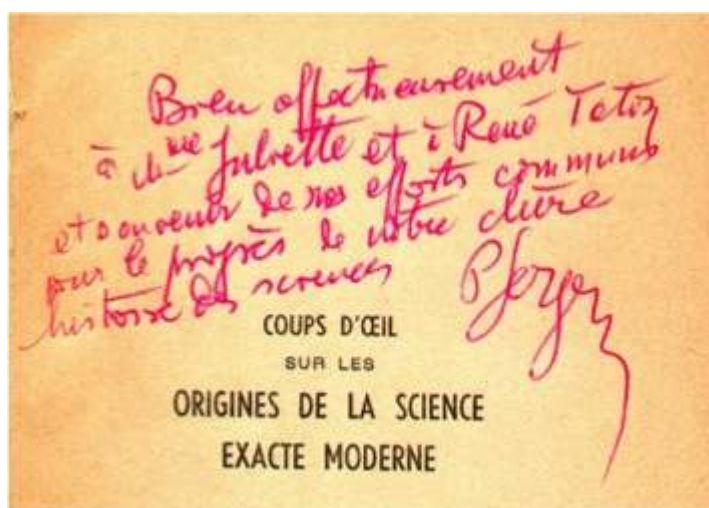 Bien affectueusement
à Mme Juliette et à René Taton
et souvenir de nos efforts communs
pour le progrès de notre chère
histoire des sciences
P Sergescu
COUPS D'ŒIL
SUR LES
ORIGINES DE LA SCIENCE
EXACTE MODERNE